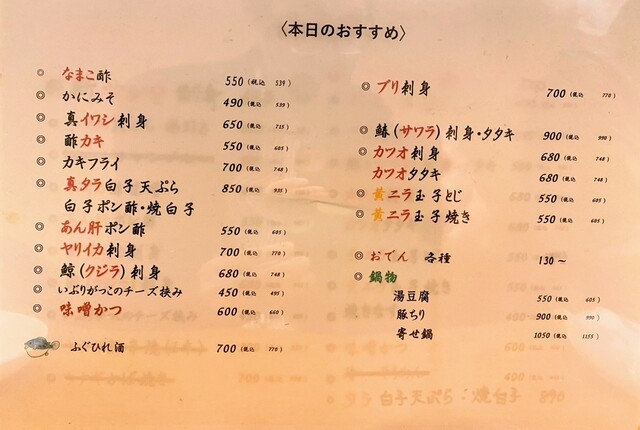 〈本日のおすすめ〉
◎ なまこ酢 550 (税込 539)
◎ かにみそ 490 (税込 539)
◎ 真イワシ刺身 650 (税込 715)
◎ 酢カキ 550 (税込 605)
◎ カキフライ 700 (税込 748)
◎ 真タラ白子天ぷら 850 (税込 935)
白子ポン酢・焼白子
◎ あん肝ポン酢 550 (税込 605)
◎ ヤリイカ刺身 700 (税込 770)
◎ 鯨(クジラ)刺身 680 (税込 748)
◎ いぶりがっこのチーズ挟み 450 (税込 495)
◎ 味噌かつ 600 (税込 660)
ふぐひれ酒 700 (税込 770)
◎ ブリ刺身 700 (税込 770)
◎ 鰆(サワラ)刺身・タタキ 900 (税込 990)
◎ カツオ刺身 680 (税込 748)
カツオタタキ 680 (税込 748)
◎ 黄ニラ玉子とじ 550 (税込 605)
◎ 黄ニラ玉子焼き 550 (税込 605)
◎ おでん 各種 130~
◎ 鍋物
湯豆腐 550 (税込 605)
豚ちり 900 (税込 990)
寄せ鍋 1050 (税込 1155)
白子天ぷら:焼白子 890